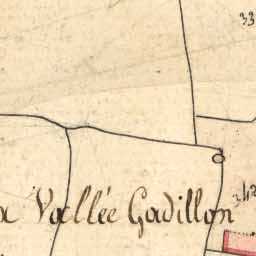 33
342
a Vallée Gadillon